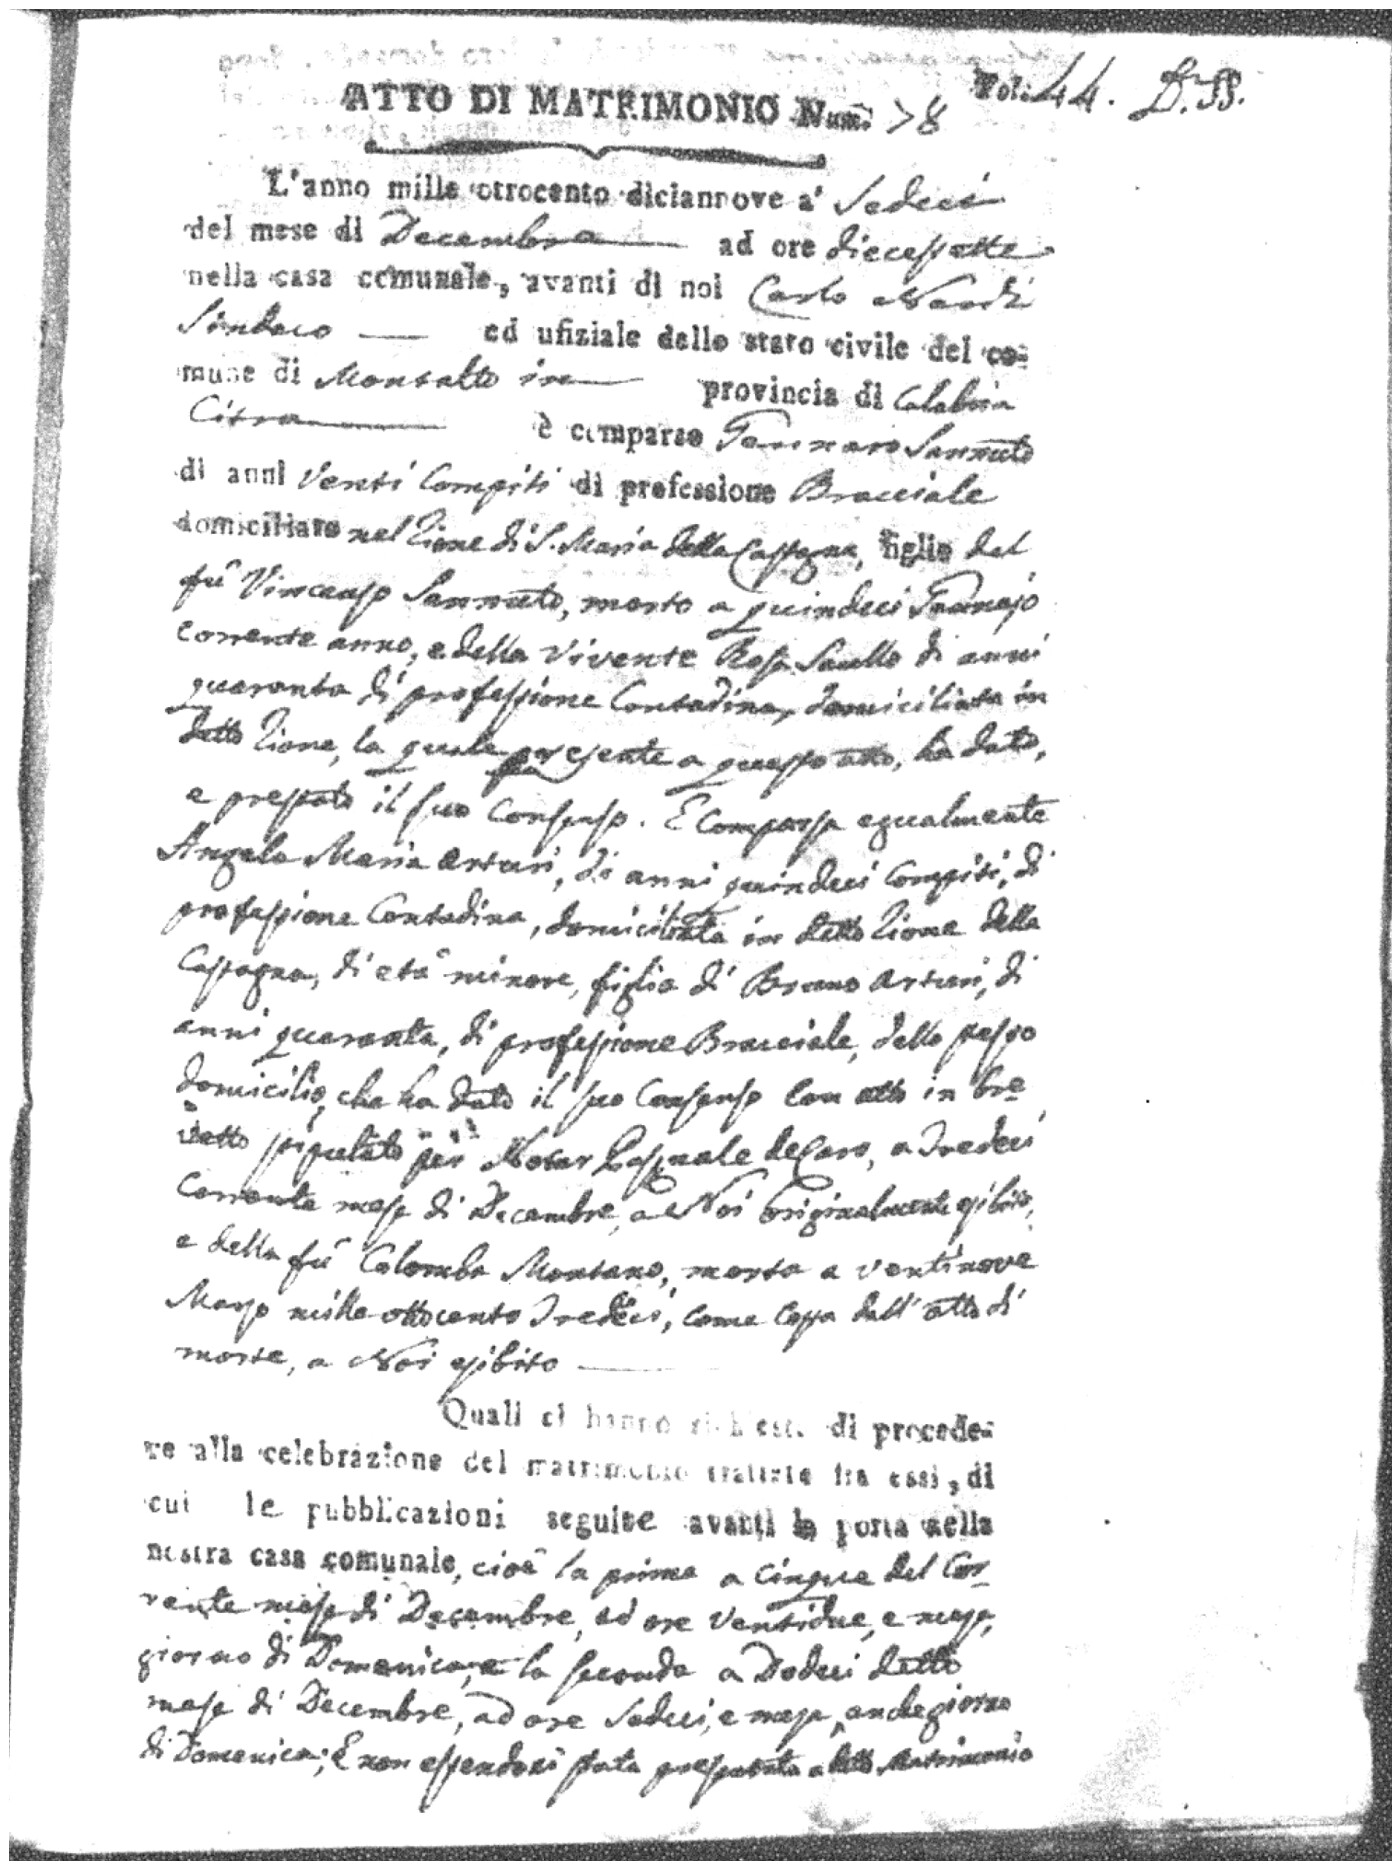 ATTO DI MATRIMONIO Num. 78
Fol: 44.
L'anno mille ottocento diciannove a' Sedeci
del mese di Decembre ad ore diecessette
nella casa comunale, avanti di noi Carlo Nardi
Sindaco ed ufiziale dello stato civile del co=
mune di Montalto in provincia di Calabria
Citra è comparso Gennaro Sannuto
di anni Venti Compiti di professione Bracciale
domiciliato nel Rione di S. Maria della Castagna, figlio del
fù Vincenzo Sannuto, morto a quindeci Gennajo
corrente anno, e della vivente Rosa Saullo di anni
quaranta di professione Contadina, domiciliata in
detto Rione, la quale presente a questo atto, ha dato,
e prestato il suo Consenso. È Comparsa egualmente
Angela Maria Arturi, di anni quindeci Compiti, di
professione Contadina, domiciliata in detto Rione della
Castagna, di età minore, figlia di Bruno Arturi, di
anni quaranta, di professione Bracciale, dello stesso
domicilio, che ha dato il suo Consenso con atto in bre
vetto stipulato per Notar Pasquale de Caro, a Tredeci
Corrente mese di Decembre, a Noi originalmente esibito,
e della fù Colomba Montano, morta a ventinove
Marzo mille ottocento Tredeci, come costa dall'atto di
morte, a Noi esibito
Quali ci hanno richiesto di procede=
re alla celebrazione del matrimonio trattato fra essi, di
cui le pubblicazioni seguite avanti la porta della
nostra casa comunale, cioè la prima a cinque del Cor
rente mese di Decembre, ad ore ventidue, e mezza,
giorno di Domenica, e la seconda a Dodeci detto
mese di Decembre, ad ore Sedeci, e mezza, anche giorno
di Domenica; E non essendosi stata presentata a detto Matrimonio